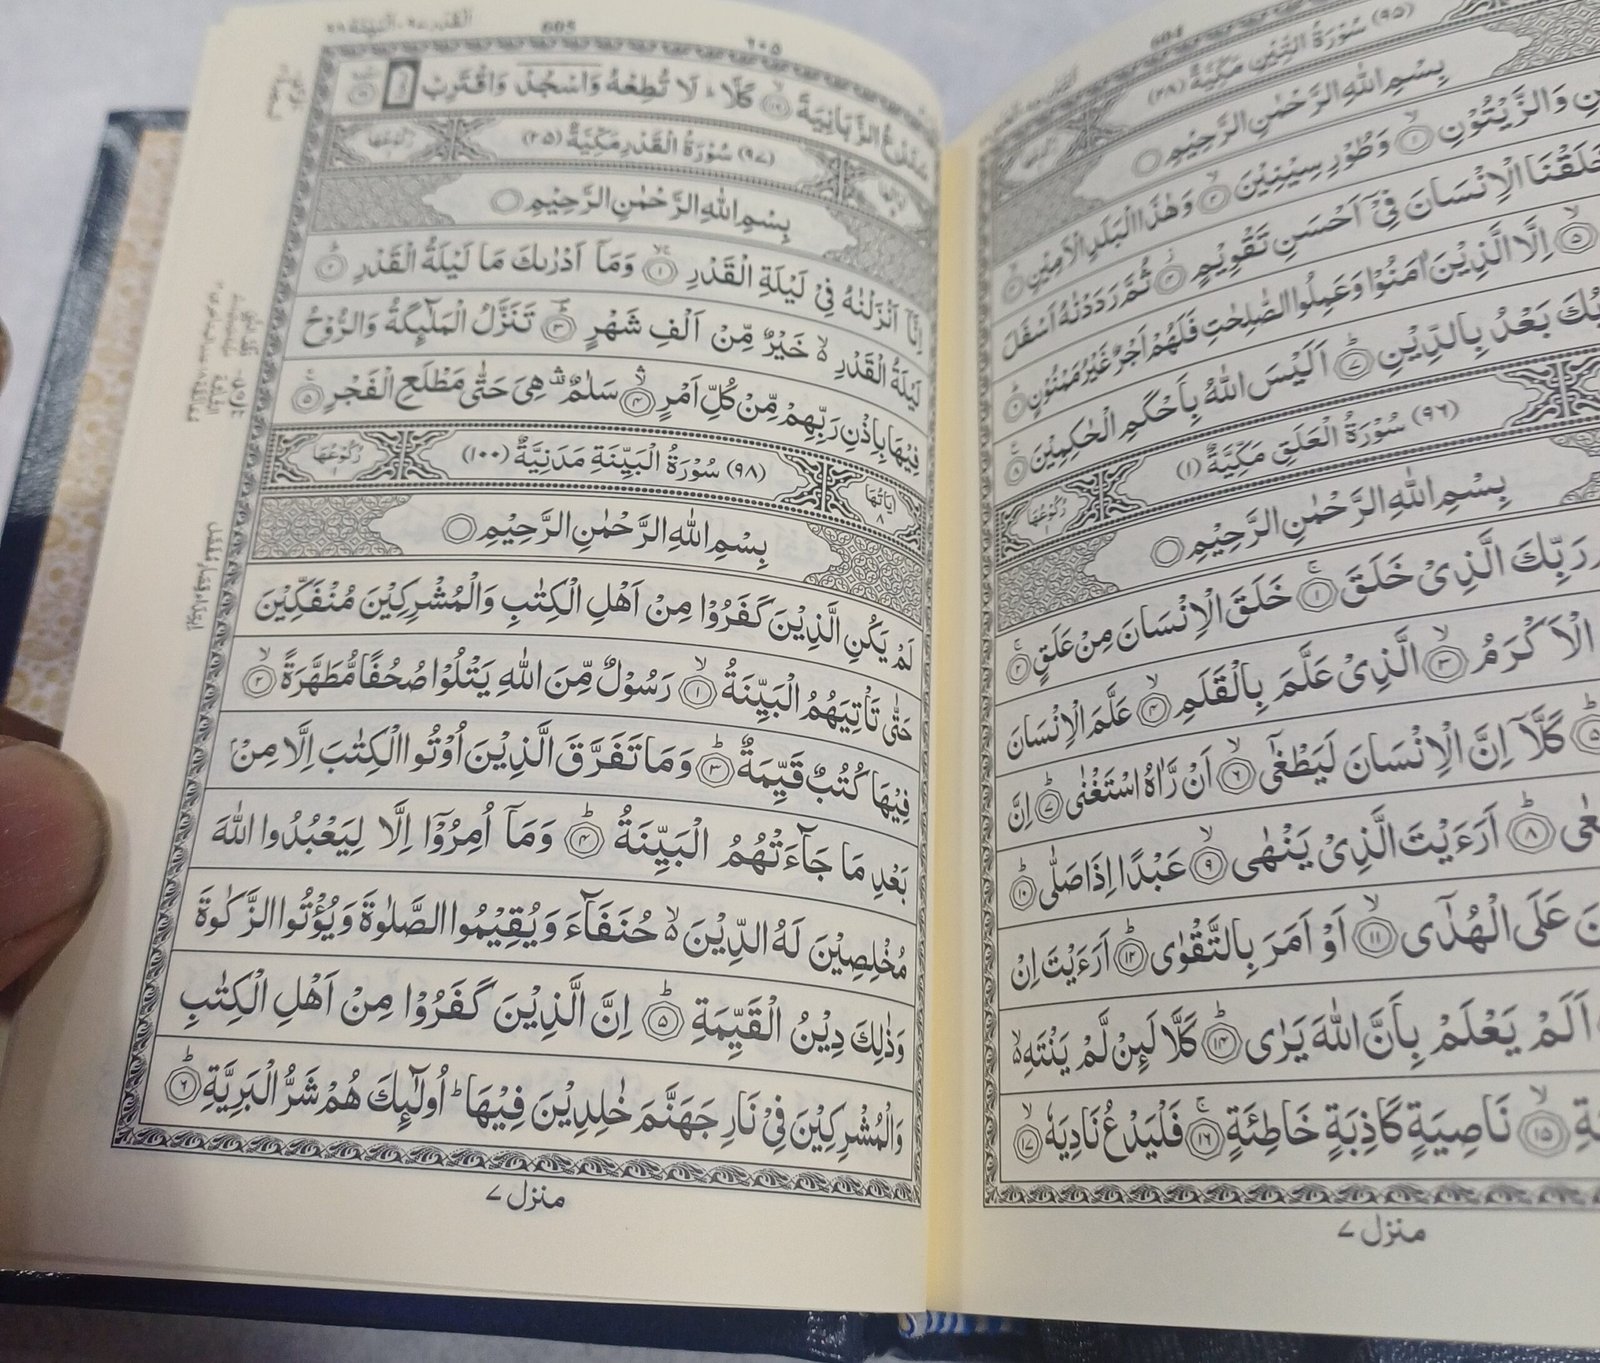 (٩٥) سُوْرَةُ التِّيْنِ مَكِّيَّةٌ (٢٨)
بِسْمِ اللّٰهِ الرَّحْمٰنِ الرَّحِيْمِ
وَالزَّيْتُوْنِ ١ وَطُوْرِ سِيْنِيْنَ ٢ وَهٰذَا الْبَلَدِ الْاَمِيْنِ ٣
خَلَقْنَا الْاِنْسَانَ فِىْٓ اَحْسَنِ تَقْوِيْمٍ ٤ ثُمَّ رَدَدْنٰهُ اَسْفَلَ
٥ اِلَّا الَّذِيْنَ اٰمَنُوْا وَعَمِلُوا الصّٰلِحٰتِ فَلَهُمْ اَجْرٌ غَيْرُ مَمْنُوْنٍ ٦
بَعْدُ بِالدِّيْنِ ٧ اَلَيْسَ اللّٰهُ بِاَحْكَمِ الْحٰكِمِيْنَ ٨
(٩٦) سُوْرَةُ الْعَلَقِ مَكِّيَّةٌ (١) رُكُوْعُهَا ١
بِسْمِ اللّٰهِ الرَّحْمٰنِ الرَّحِيْمِ
رَبِّكَ الَّذِىْ خَلَقَ ١ خَلَقَ الْاِنْسَانَ مِنْ عَلَقٍ ٢
الْاَكْرَمُ ٣ الَّذِىْ عَلَّمَ بِالْقَلَمِ ٤ عَلَّمَ الْاِنْسَانَ
٥ كَلَّآ اِنَّ الْاِنْسَانَ لَيَطْغٰٓى ٦ اَنْ رَّاٰهُ اسْتَغْنٰى ٧ اِنَّ
٨ اَرَءَيْتَ الَّذِىْ يَنْهٰى ٩ عَبْدًا اِذَا صَلّٰى ١٠
عَلَى الْهُدٰٓى ١١ اَوْ اَمَرَ بِالتَّقْوٰى ١٢ اَرَءَيْتَ اِنْ
اَلَمْ يَعْلَمْ بِاَنَّ اللّٰهَ يَرٰى ١٤ كَلَّا لَئِنْ لَّمْ يَنْتَهِ
١٥ نَاصِيَةٍ كَاذِبَةٍ خَاطِئَةٍ ١٦ فَلْيَدْعُ نَادِيَهٗ ١٧
منزل ٧
605 ٦٠٥
سَنَدْعُ الزَّبَانِيَةَ ١٨ كَلَّا لَا تُطِعْهُ وَاسْجُدْ وَاقْتَرِبْ ١٩
(٩٧) سُوْرَةُ الْقَدْرِ مَكِّيَّةٌ (٢٥) رُكُوْعُهَا ١
بِسْمِ اللّٰهِ الرَّحْمٰنِ الرَّحِيْمِ
اِنَّآ اَنْزَلْنٰهُ فِىْ لَيْلَةِ الْقَدْرِ ١ وَمَآ اَدْرٰىكَ مَا لَيْلَةُ الْقَدْرِ ٢
لَيْلَةُ الْقَدْرِ خَيْرٌ مِّنْ اَلْفِ شَهْرٍ ٣ تَنَزَّلُ الْمَلٰٓئِكَةُ وَالرُّوْحُ
فِيْهَا بِاِذْنِ رَبِّهِمْ مِّنْ كُلِّ اَمْرٍ ٤ سَلٰمٌ هِىَ حَتّٰى مَطْلَعِ الْفَجْرِ ٥
اٰيَاتُهَا ٨ (٩٨) سُوْرَةُ الْبَيِّنَةِ مَدَنِيَّةٌ (١٠٠) رُكُوْعُهَا ١
بِسْمِ اللّٰهِ الرَّحْمٰنِ الرَّحِيْمِ
لَمْ يَكُنِ الَّذِيْنَ كَفَرُوْا مِنْ اَهْلِ الْكِتٰبِ وَالْمُشْرِكِيْنَ مُنْفَكِّيْنَ
حَتّٰى تَاْتِيَهُمُ الْبَيِّنَةُ ١ رَسُوْلٌ مِّنَ اللّٰهِ يَتْلُوْا صُحُفًا مُّطَهَّرَةً ٢
فِيْهَا كُتُبٌ قَيِّمَةٌ ٣ وَمَا تَفَرَّقَ الَّذِيْنَ اُوْتُوا الْكِتٰبَ اِلَّا مِنْ
بَعْدِ مَا جَآءَتْهُمُ الْبَيِّنَةُ ٤ وَمَآ اُمِرُوْٓا اِلَّا لِيَعْبُدُوا اللّٰهَ
مُخْلِصِيْنَ لَهُ الدِّيْنَ حُنَفَآءَ وَيُقِيْمُوا الصَّلٰوةَ وَيُؤْتُوا الزَّكٰوةَ
وَذٰلِكَ دِيْنُ الْقَيِّمَةِ ٥ اِنَّ الَّذِيْنَ كَفَرُوْا مِنْ اَهْلِ الْكِتٰبِ
وَالْمُشْرِكِيْنَ فِىْ نَارِ جَهَنَّمَ خٰلِدِيْنَ فِيْهَا ؕ اُولٰٓئِكَ هُمْ شَرُّ الْبَرِيَّةِ ٦
منزل ٧